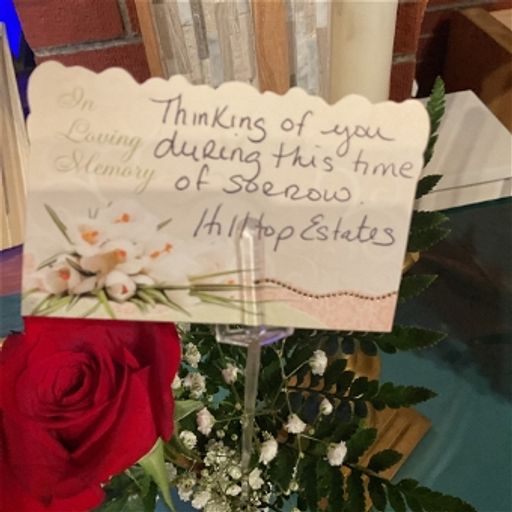 In
Loving
Memory
Thinking of you
during this time
of sorrow.
Hilltop Estates